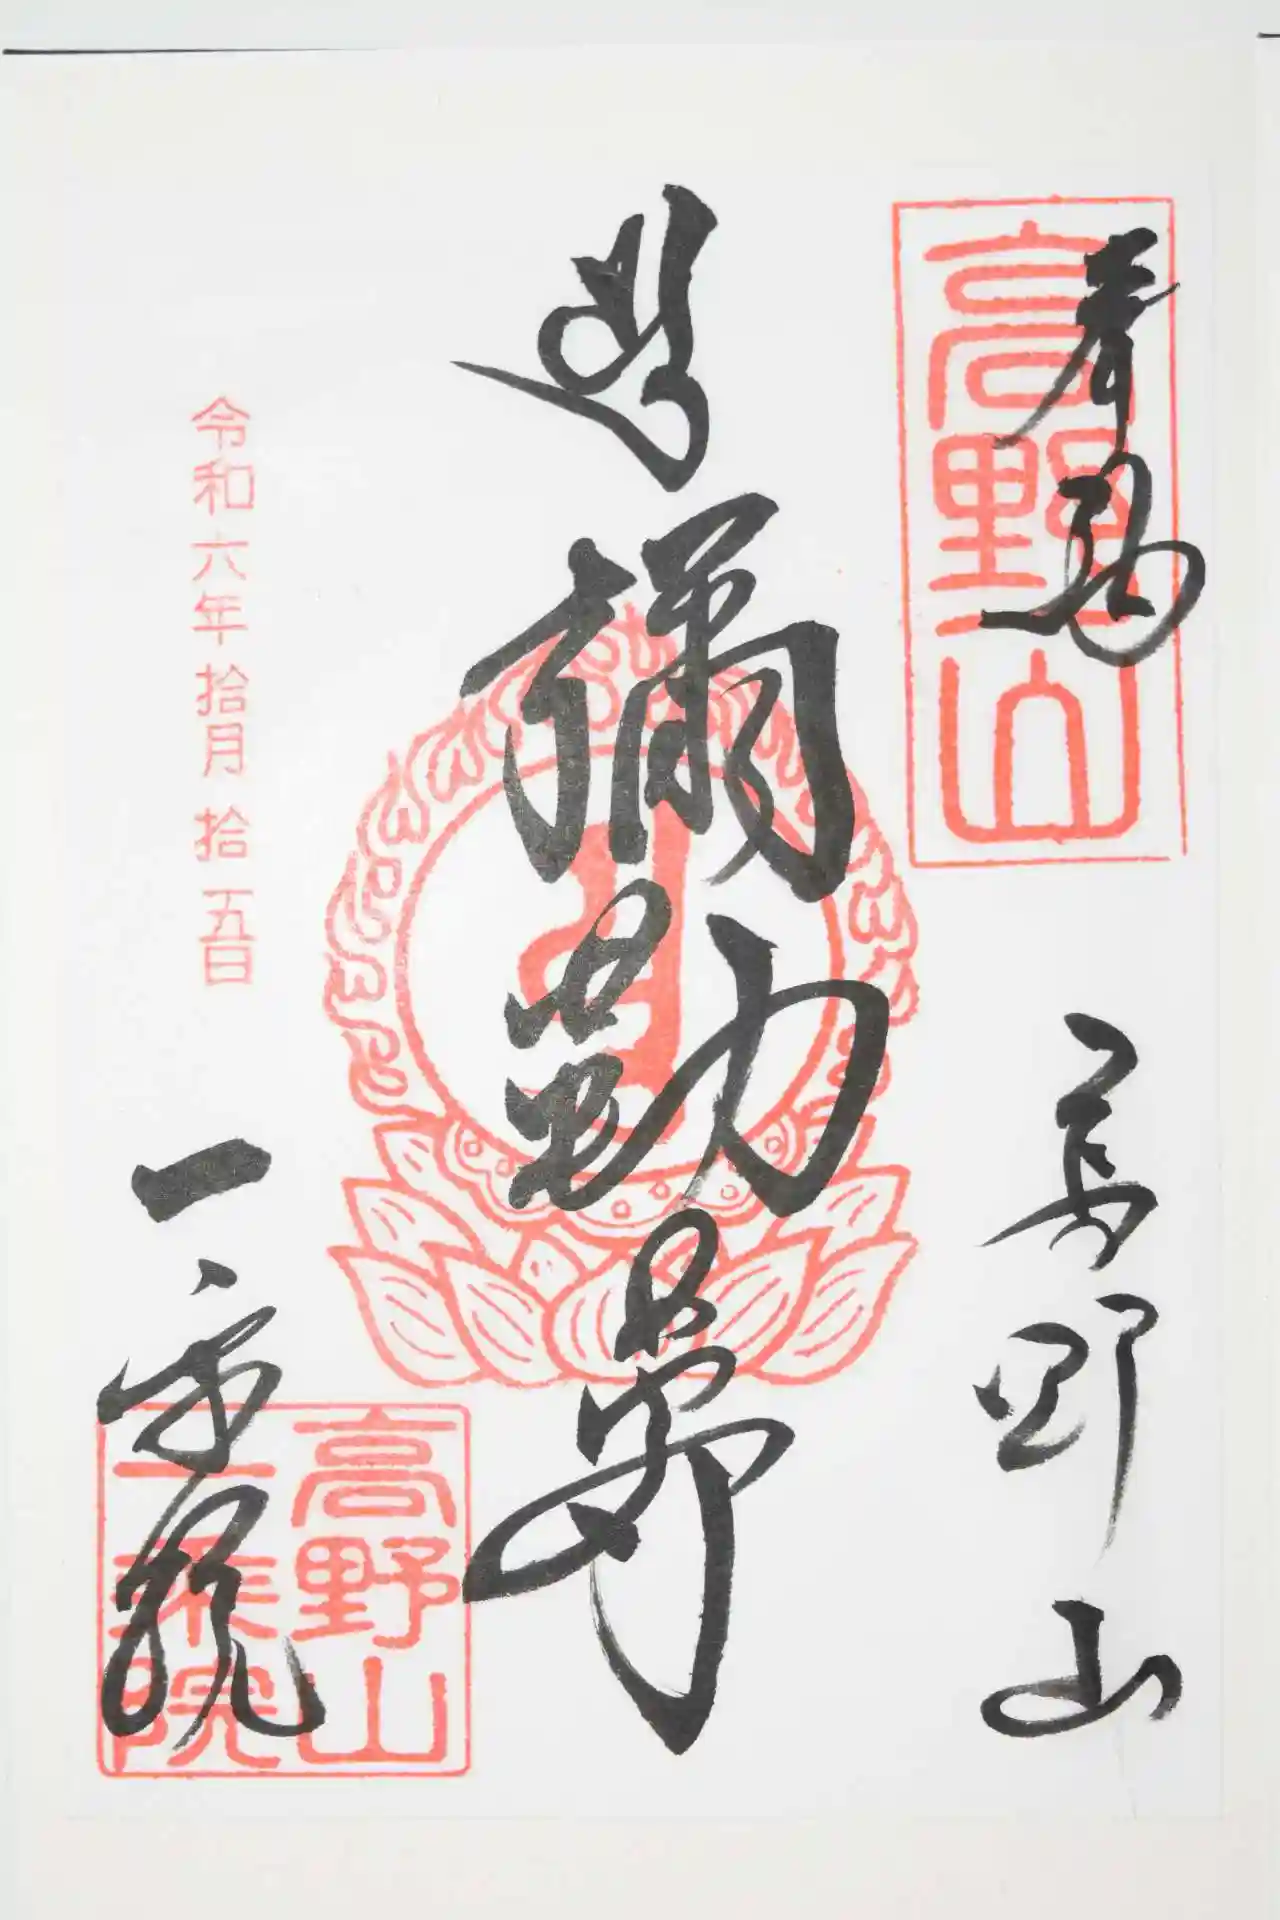 奉拜
高野山
高野山
彌勒尊
令和六年拾月拾五日
一乗院
高野山
一乗院